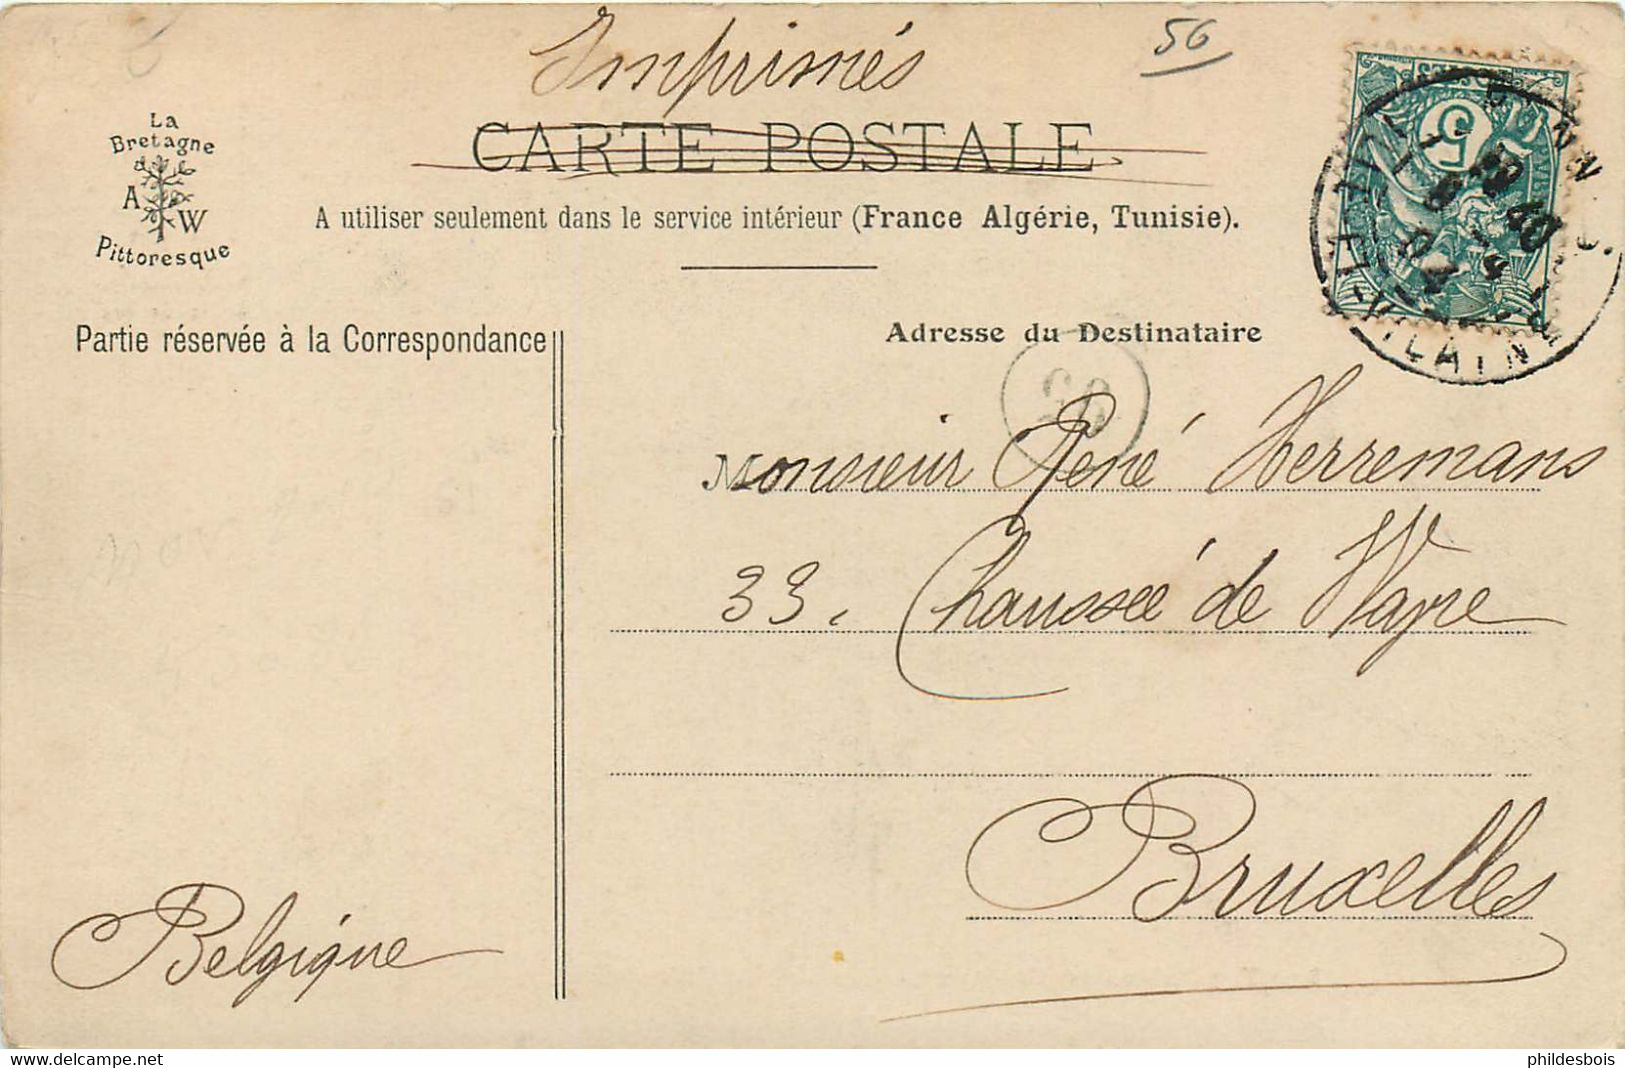 Imprimés
56
La
Bretagne
A W
Pittoresque
CARTE POSTALE
A utiliser seulement dans le service intérieur (France Algérie, Tunisie).
Partie réservée à la Correspondance
Adresse du Destinataire
Monsieur René Herremans
33, Chaussée de Wavre
Bruxelles
Belgique
5
delcampe.net
phildesbois